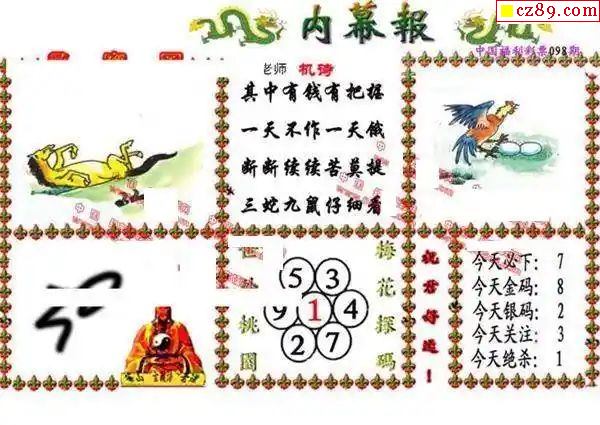 cz89.com
内幕報
中国福利彩票098期
老师 机诗
其中有钱有把握
一天不作一天饿
断断续续苦莫提
三蛇九鼠仔细看
世外桃園
5 3
9 1 4
2 7
梅花探碼
祝君好运！
今天必下： 7
今天金码： 8
今天银码： 2
今天关注： 3
今天绝杀： 1